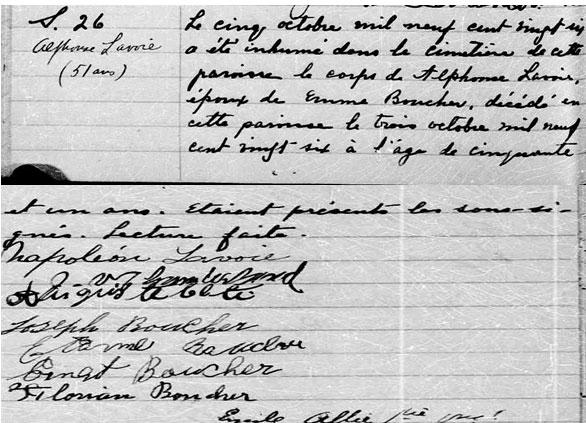 S. 26
Alphonse Lavoie
(51 ans)
Le cinq octobre mil neuf cent vingt-six
a été inhumé dans le cimetière de cette
paroisse le corps de Alphonse Lavoie,
époux de Emma Boucher, décédé en
cette paroisse le trois octobre mil neuf
cent vingt six à l'âge de cinquante
et un ans. Etaient présents les sous-si-
gnés. Lecture faite.
Napoléon Lavoie
Auguste
Joseph Boucher
Etienne Boucher
Ernest Boucher
Florian Boucher
Emile ptre